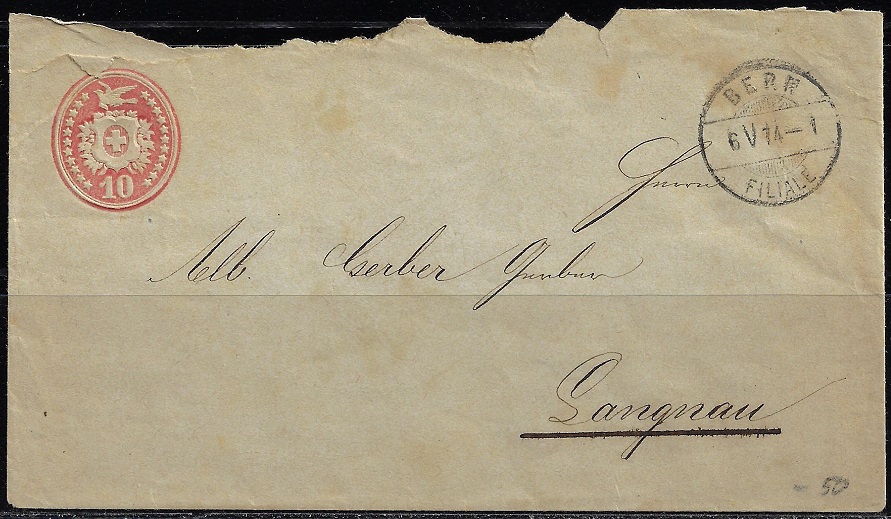 10
BERN
6 V 74-1
FILIALE
Herrn
Alb. Gerber Gerber
Langnau
50